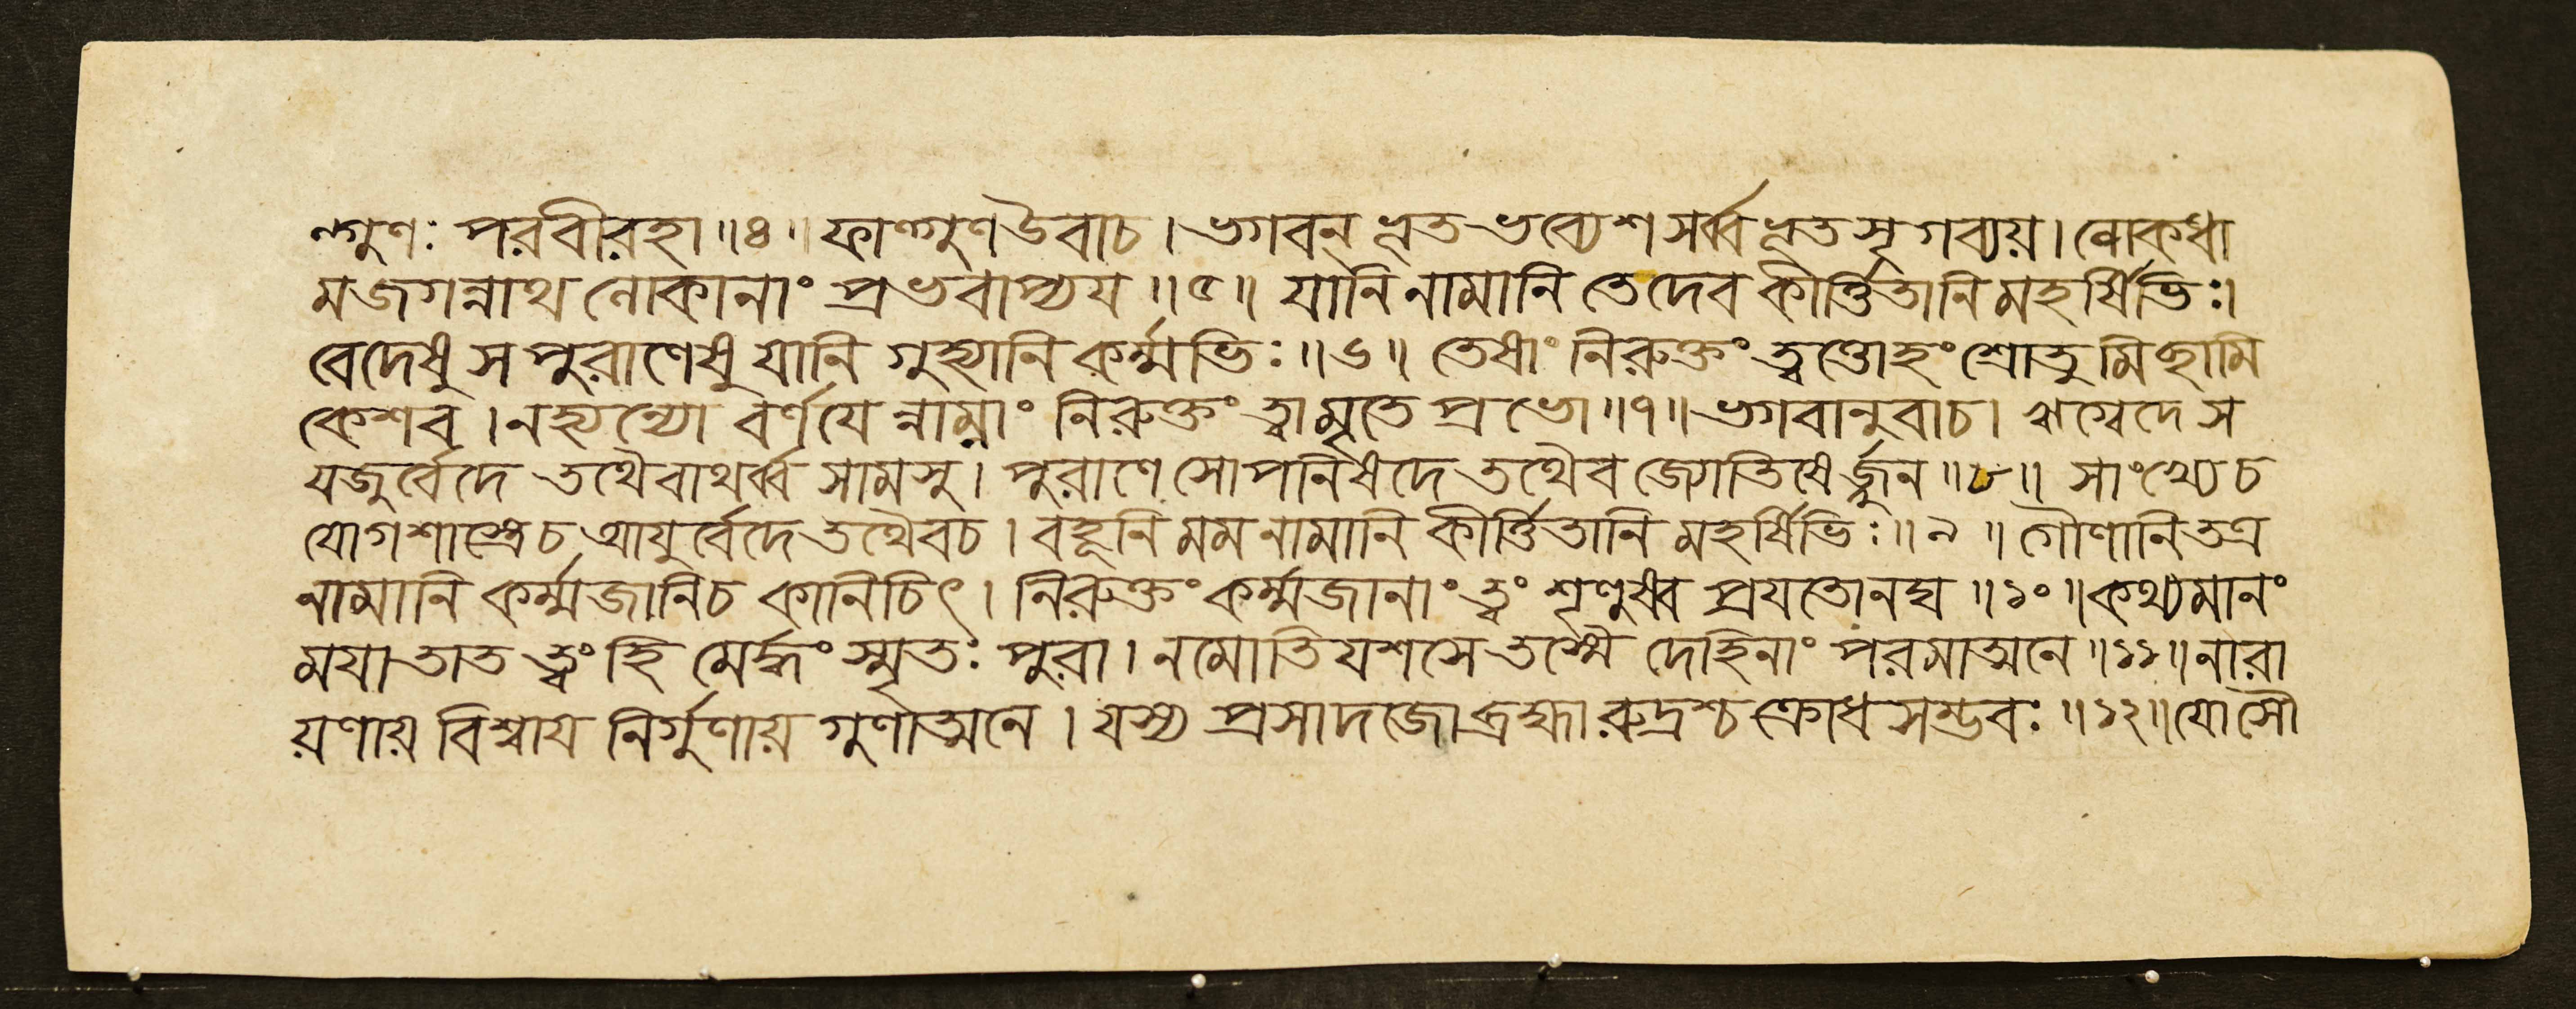 ল্গুণঃ পরবীরহা ॥৪॥ ফাল্গুণউবাচ। ভগবন্ ভূতভব্যেশ সর্ব্বভূতসৃগব্যয়। লোকধা
মজগন্নাথ লোকানাং প্রভবাপ্যয ॥৫॥ যানি নামানি তেদেব কীর্ত্তিতানি মহর্ষিভিঃ।
বেদেষু সপুরাণেষু যানি গুহ্যানি কর্ম্মভিঃ ॥৬॥ তেষাং নিরুক্তং ত্বত্তোহং শ্রোতুমিছামি
কেশব। নহ্যন্যো বর্ণযেন্নাম্নাং নিরুক্তং ত্বামৃতে প্রভো ॥৭॥ ভগবানুবাচ। ঋগ্বেদে স
যজুর্বেদে তথৈবাথর্ব্ব সামসু। পুরাণে সোপনিষদে তথৈব জ্যোতিষের্জ্জুন ॥৮॥ সাংখ্যেচ
যোগশাস্ত্রেচ আযুর্বেদে তথৈবচ। বহূনি মম নামানি কীর্ত্তিতানি মহর্ষিভিঃ ॥৯॥ গৌণানি তত্র
নামানি কর্ম্মজানিচ কানিচিৎ। নিরুক্তং কর্ম্মজানাং ত্বং শৃণুষ্ব প্রযতোনঘ ॥১০॥ কথ্যমানং
মযা তাত ত্বং হি মের্দ্ধং স্মৃতঃ পুরা। নমোতিযশসে তস্মৈ দেহিনাং পরমাত্মনে ॥১১॥ নারা
য়ণায় বিশ্বায নির্গুণায় গুণাত্মনে। যস্য প্রসাদজো ব্রহ্মা রুদ্রশ্চ ক্রোধসম্ভবঃ ॥১২॥ যোসৌ